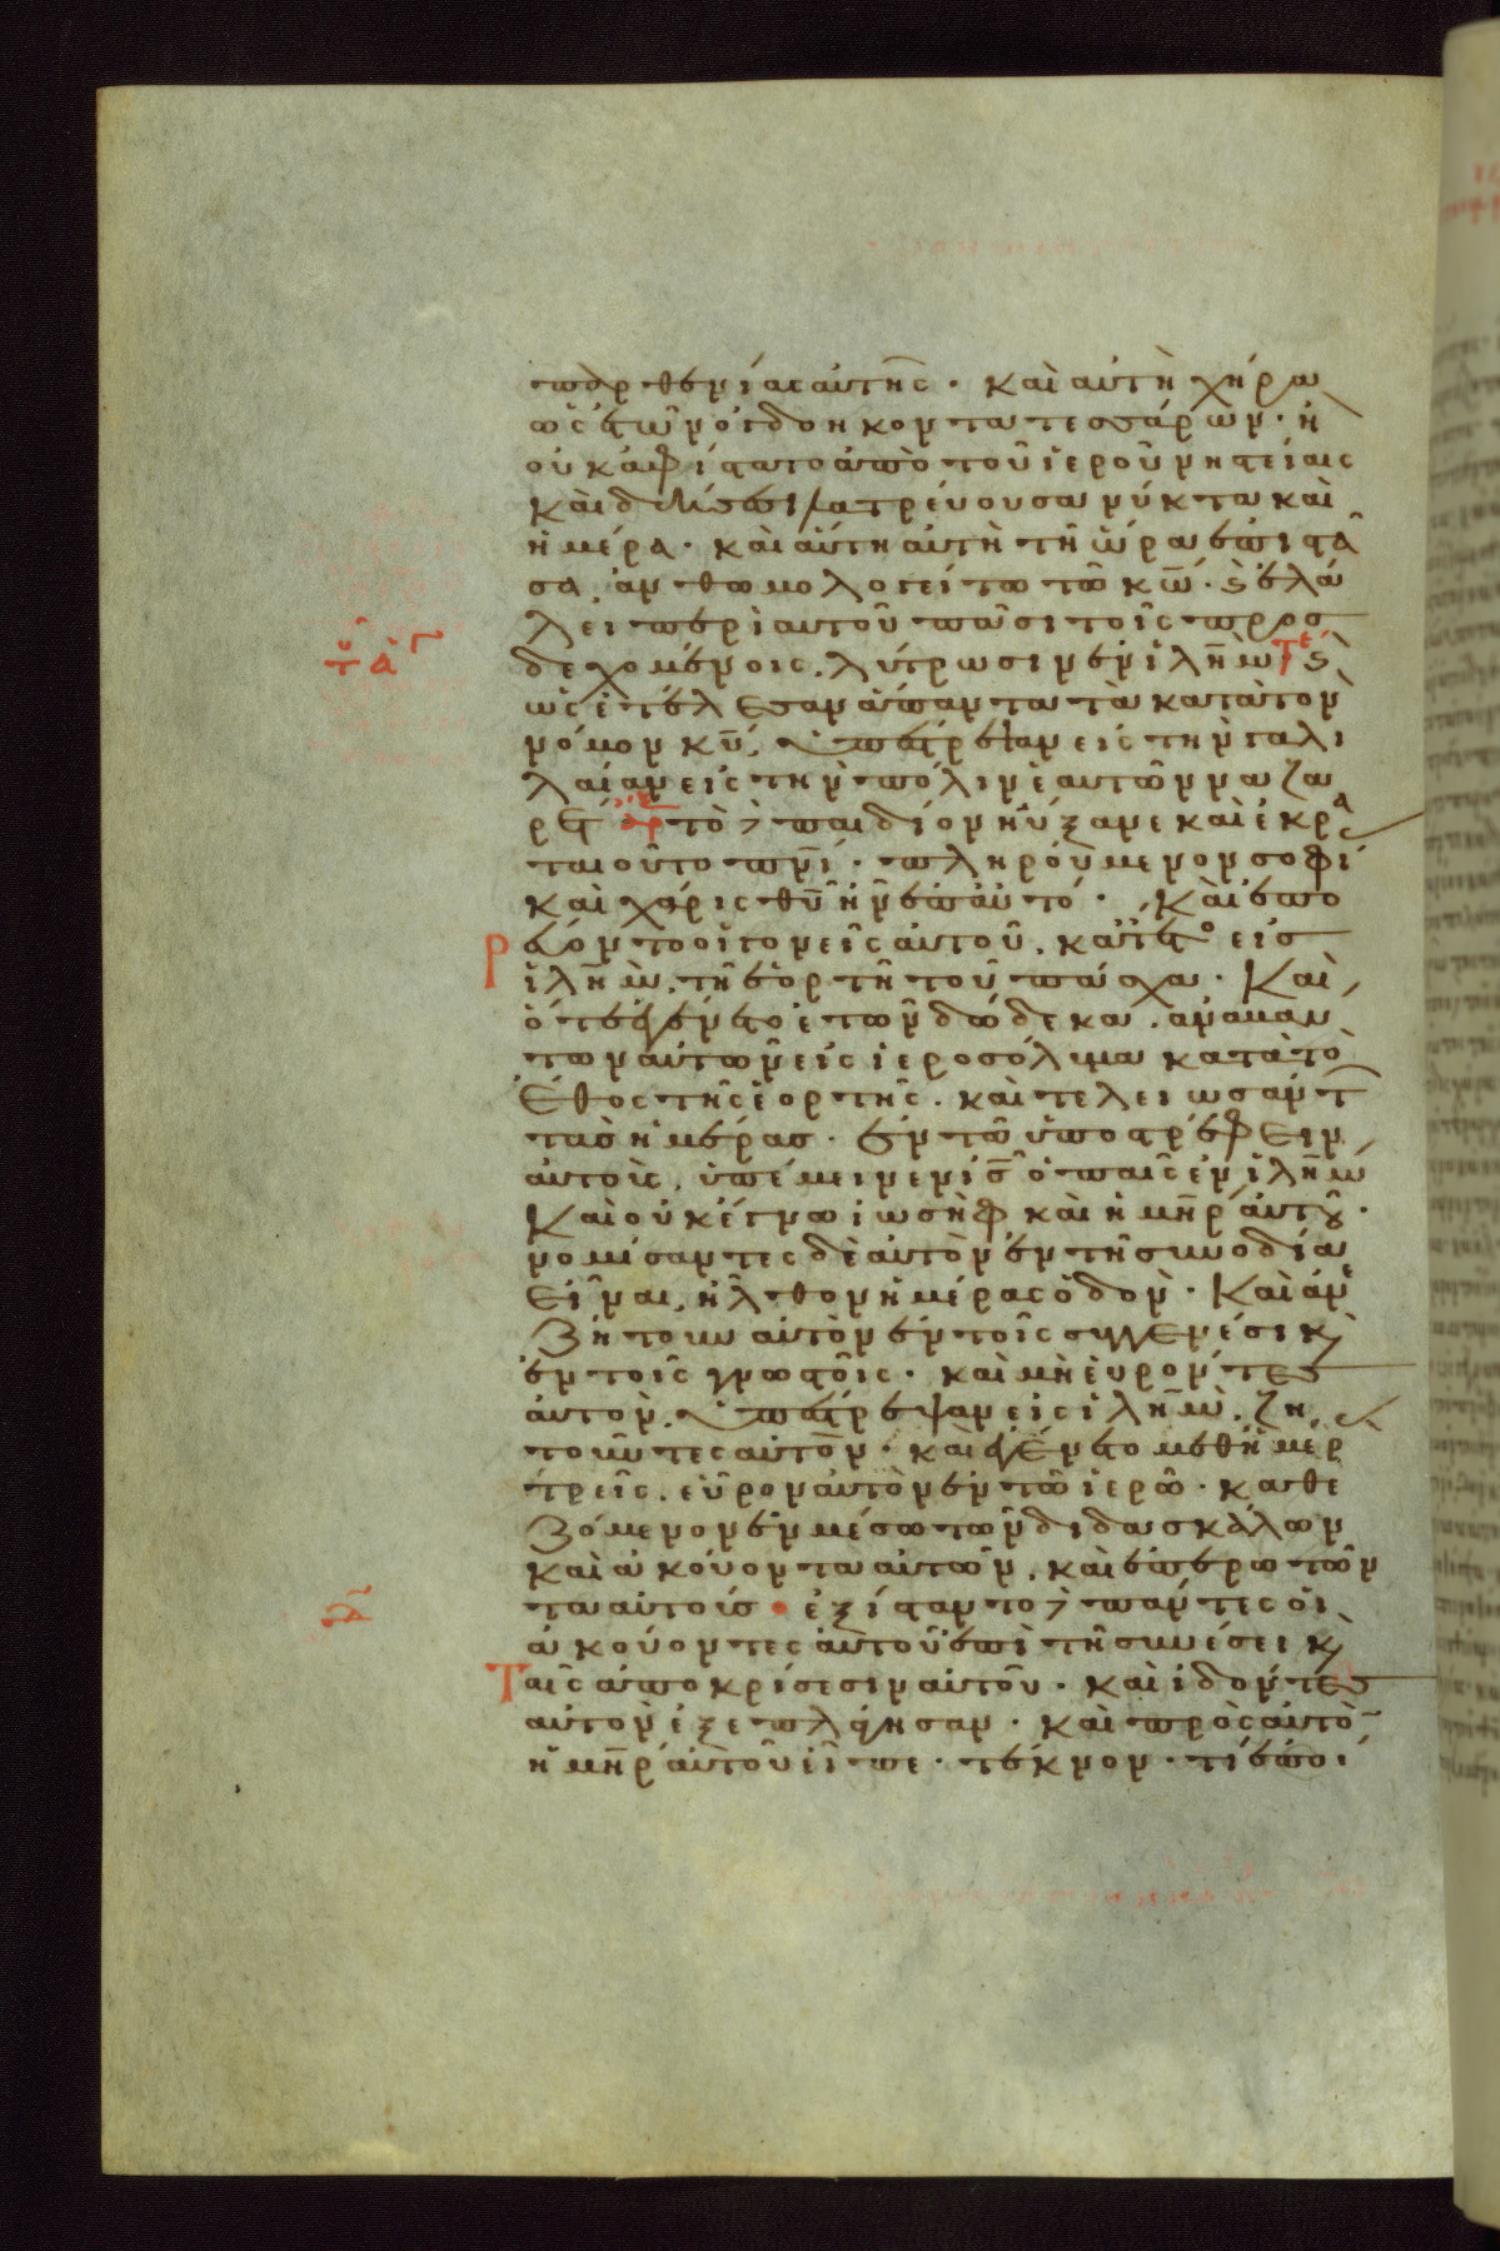 παρθενίας αὐτῆς · καὶ αὐτὴ χήρα
ὡς ἐτῶν ὀγδοηκοντατεσσάρων · ἣ
οὐκ ἀφίστατο ἀπὸ τοῦ ἱεροῦ νηστείαις
καὶ δεήσεσι λατρεύουσα νύκτα καὶ
ἡμέραν · καὶ αὕτη αὐτῇ τῇ ὥρα ἐπιστᾶ
σα, ἀνθωμολογεῖτο τῶ κ̅ω̅ · κ̀ ἐλά
λει περὶ αὐτοῦ πᾶσι τοῖς προσ
δεχομένοις, λύτρωσιν ἐν ἰλη̅μ τε κ̀
τ
ὡς ἐτέλεσαν ἅπαντα τὰ κατὰ τὸν
νόμον κ̅υ̅, ὑπέστρεψαν εἰς τὴν γαλι
λαίαν εἰς τὴν πόλιν ἑαυτῶν ναζα
ρέτ τὸ δὲ παιδίον ηὔξανε καὶ ἐκρα
ταιοῦτο π̅ν̅ι · πληρούμενον σοφί
καὶ χάρις θ̅υ̅ ἦν ἐπ' αὐτό · Καὶ ἐπο
ρεύοντο οἱ γονεῖς αὐτοῦ, κατ' ἔτος εἰς
ἰλη̅μ, τῇ ἑορτῇ τοῦ πάσχα · Καὶ
ὅτε ἐγένετο ἐτῶν δώδεκα, ἀναβάν
των αὐτῶν εἰς ἱεροσόλυμα κατὰ τὸ
ἔθος τῆς ἑορτῆς, καὶ τελειωσάντ
τὰς ἡμέρας · ἐν τῶ ὑποστρέφειν
αὐτοὺς, ὑπέμεινεν ι̅ς̅ ὁ παῖς ἐν ἰλη̅μ
Καὶ οὐκ ἔγνω ἰωσὴφ καὶ ἡ μη̅ρ αὐτοῦ ·
νομίσαντες δὲ αὐτὸν ἐν τῇ συνοδία
εἶναι, ἦλθον ἡμέρας ὁδὸν · Καὶ ἀνε
ζήτουν αὐτὸν ἐν τοῖς συγγενέσι κ̀
ἐν τοῖς γνωστοῖς · καὶ μὴ εὑρόντες
αὐτὸν, ὑπέστρεψαν εἰς ἰλη̅μ, ζη
τοῦντες αὐτὸν · καὶ ἐγένετο μεθ' ἡμέρ
τρεῖς, εὗρον αὐτὸν ἐν τῶ ἱερῶ · καθε
ζόμενον ἐν μέσω τῶν διδασκάλων
καὶ ἀκούοντα αὐτῶν, καὶ ἐπερωτῶν
τα αὐτούς · ἐξίσταντο δὲ πάντες οἱ
ἀκούοντες αὐτοῦ ἐπὶ τῇ συνέσει κ̀
Ταῖς ἀποκρίσεσιν αὐτοῦ · καὶ ἰδόντες
αὐτὸν ἐξεπλάγησαν · καὶ πρὸς αὐτὸ
ἡ μη̅ρ αὐτοῦ εἶπε · τέκνον · τί ἐποί